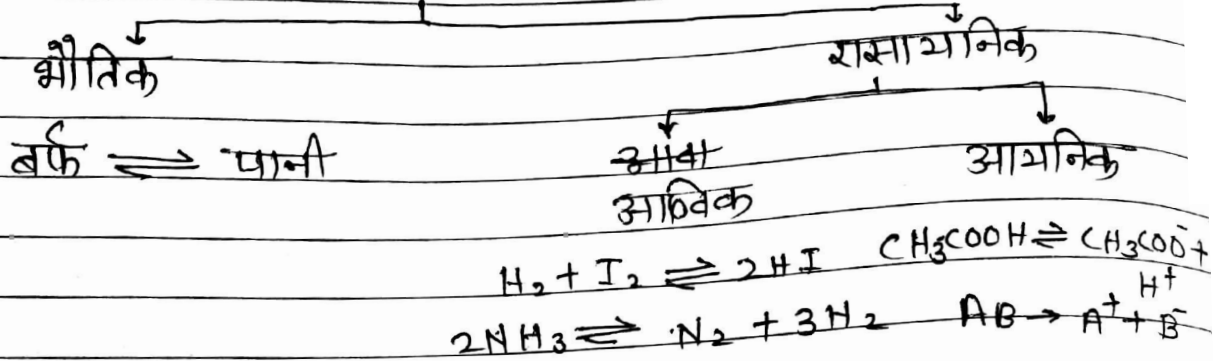 भौतिक रासायनिक
बर्फ ⇌ पानी आवा आयनिक
आण्विक
H₂ + I₂ ⇌ 2HI CH₃COOH ⇌ CH₃COO⁻ + H⁺
2NH₃ ⇌ N₂ + 3H₂ AB → A⁺ + B⁻